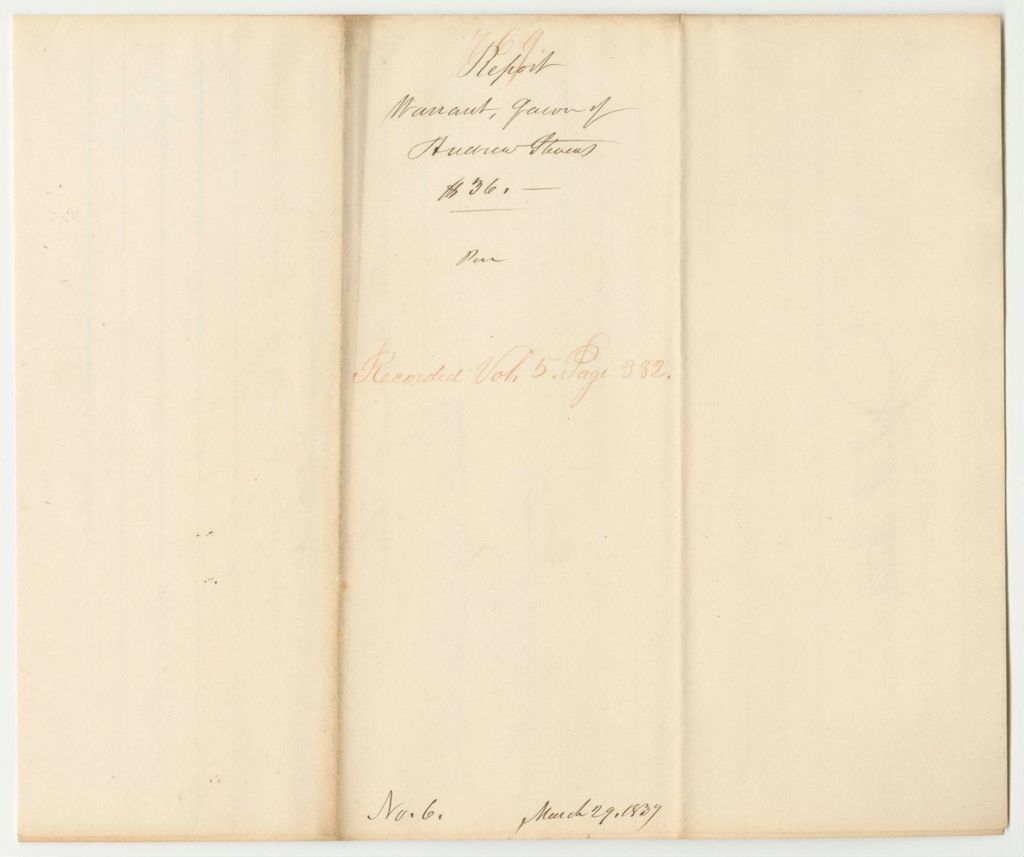 769
Report
Warrant, favor of
Andrew Stevens
$36. —
Recorded Vol. 5. Page 382.
No. 6. March 29. 1837